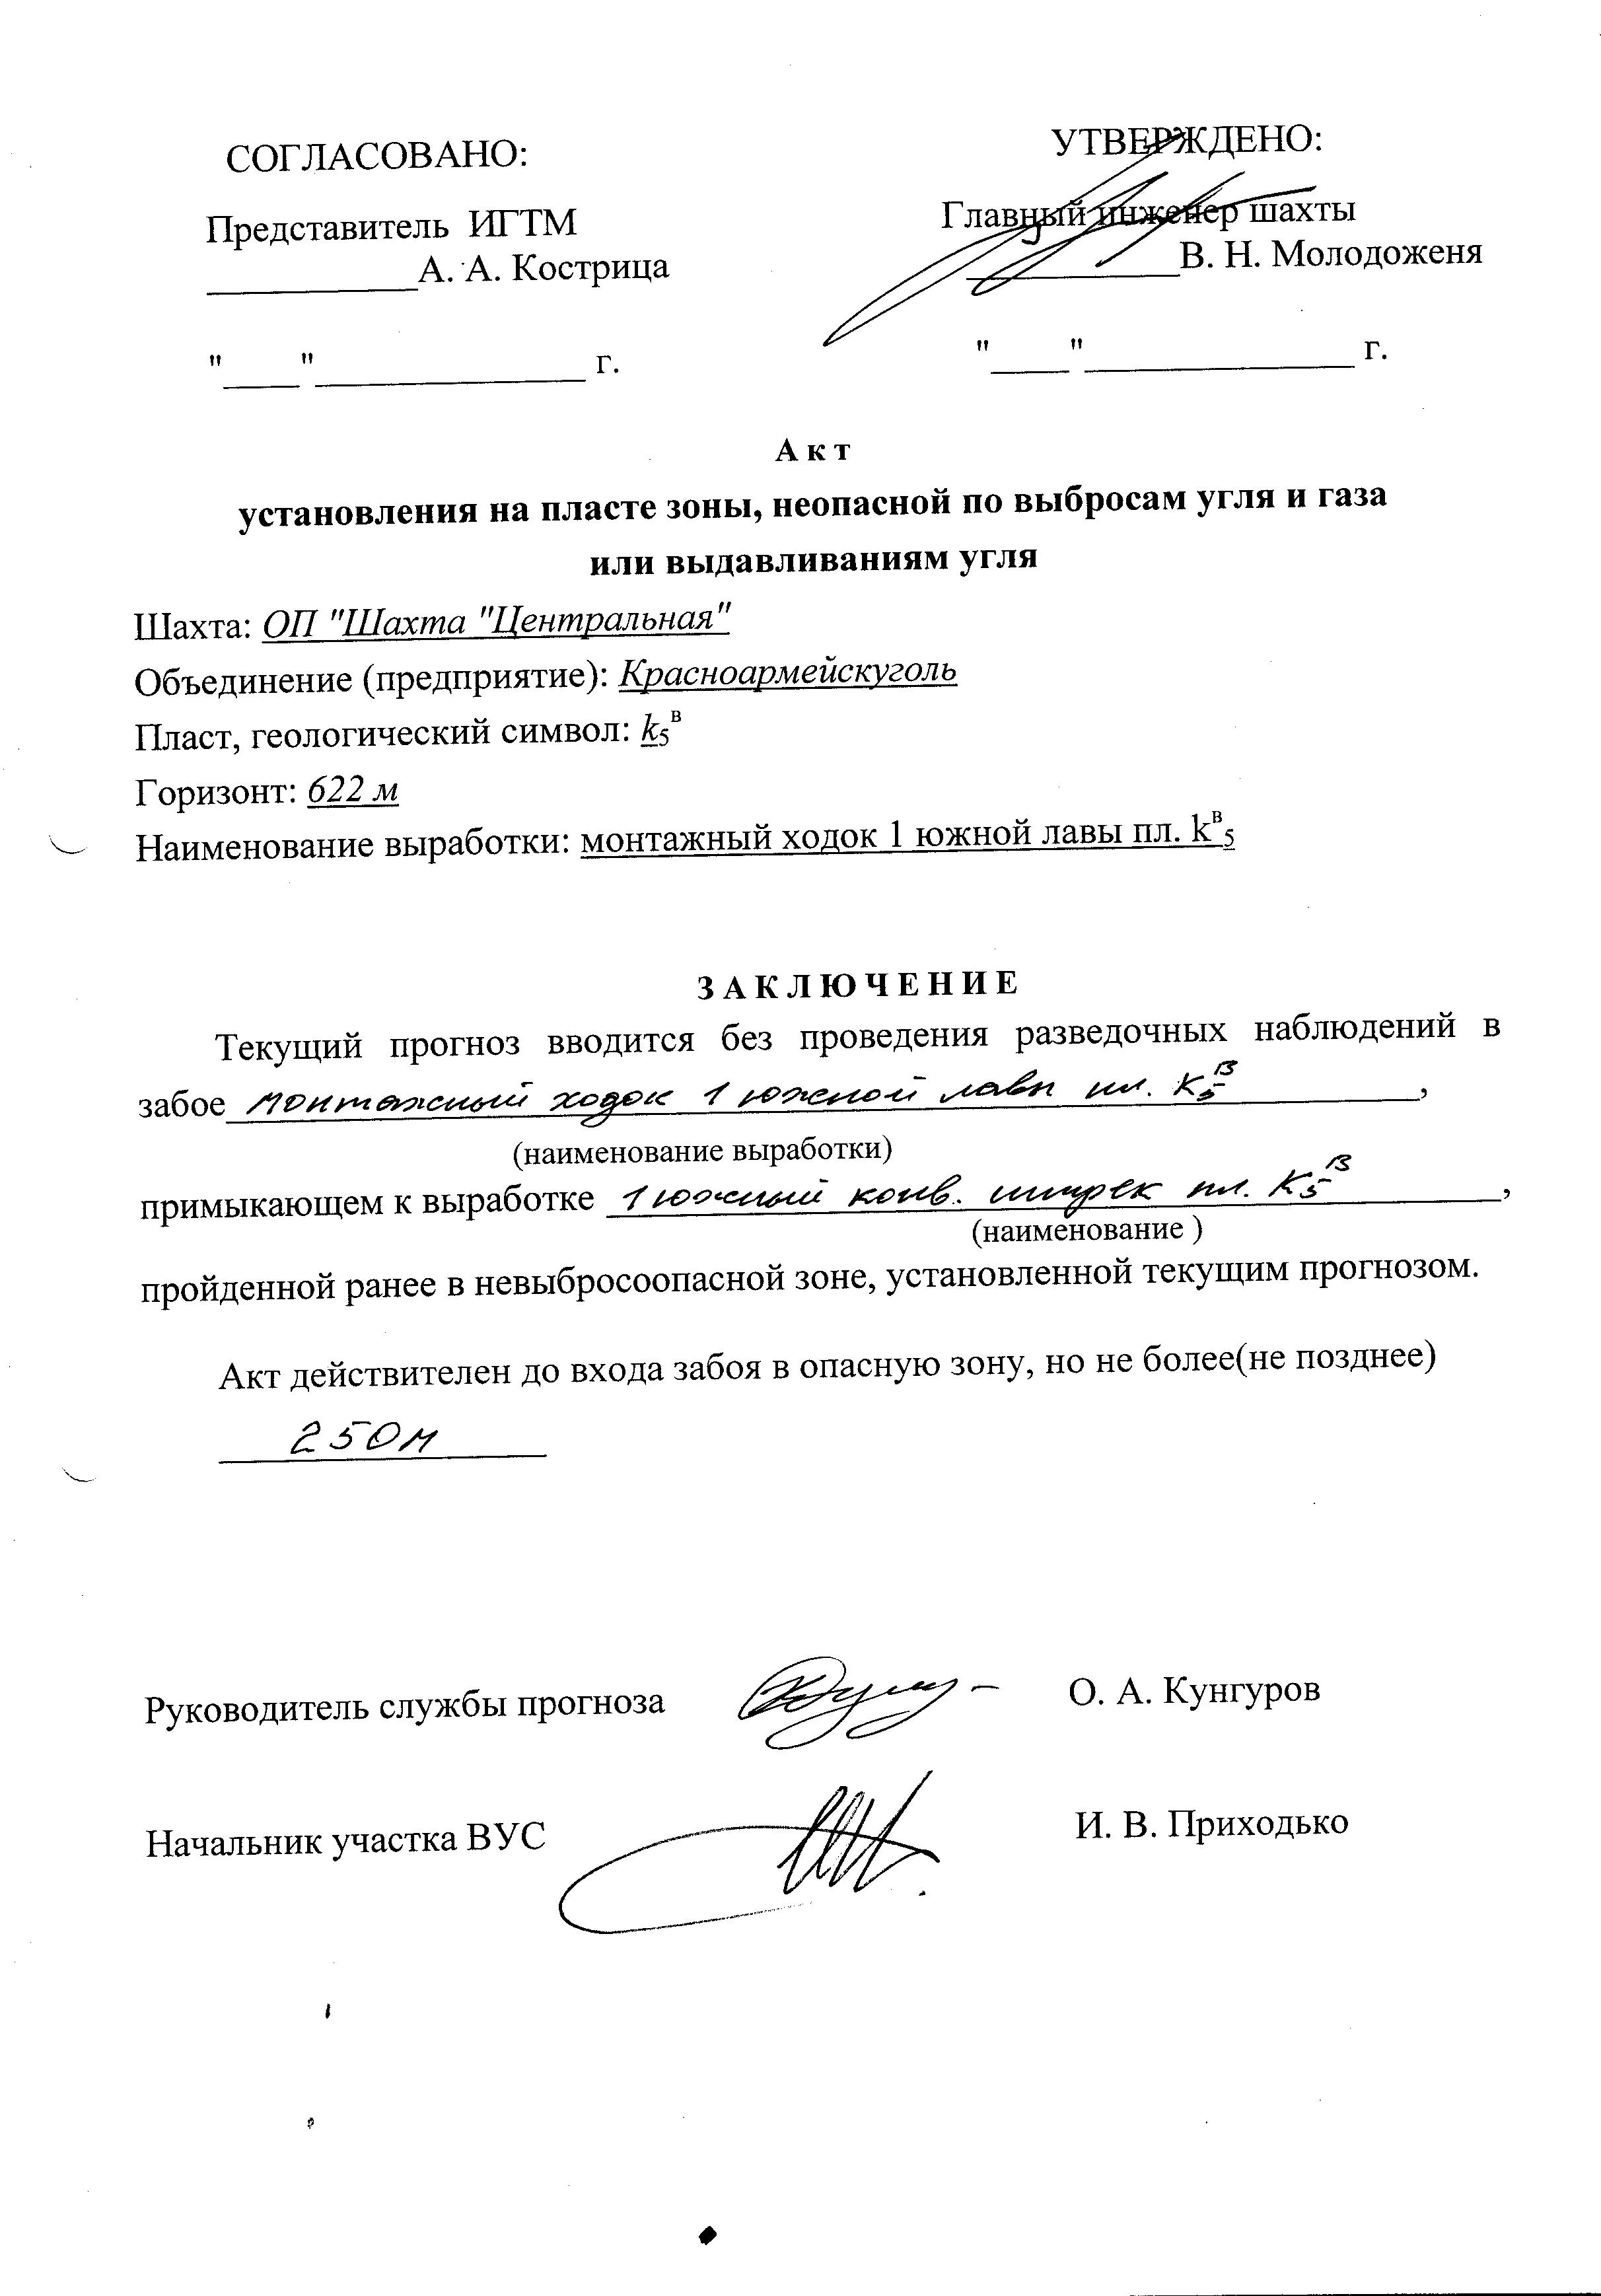 СОГЛАСОВАНО:
УТВЕРЖДЕНО:
Представитель ИГТМ
Главный инженер шахты
____________А. А. Кострица
____________В. Н. Молодоженя
"____"______________ г.
"____"______________ г.
А к т
установления на пласте зоны, неопасной по выбросам угля и газа
или выдавливаниям угля
Шахта: ОП "Шахта "Центральная"
Объединение (предприятие): Красноармейскуголь
Пласт, геологический символ: k₅ᵛ
Горизонт: 622 м
Наименование выработки: монтажный ходок 1 южной лавы пл. kᵛ₅
З А К Л Ю Ч Е Н И Е
Текущий прогноз вводится без проведения разведочных наблюдений в
забое монтажный ходок 1 южной лавы пл. К₅ᴮ,
(наименование выработки)
примыкающем к выработке 1 южный конв. штрек пл. К₅ᴮ,
(наименование )
пройденной ранее в невыбросоопасной зоне, установленной текущим прогнозом.
Акт действителен до входа забоя в опасную зону, но не более(не позднее)
250м
Руководитель службы прогноза О. А. Кунгуров
Начальник участка ВУС И. В. Приходько